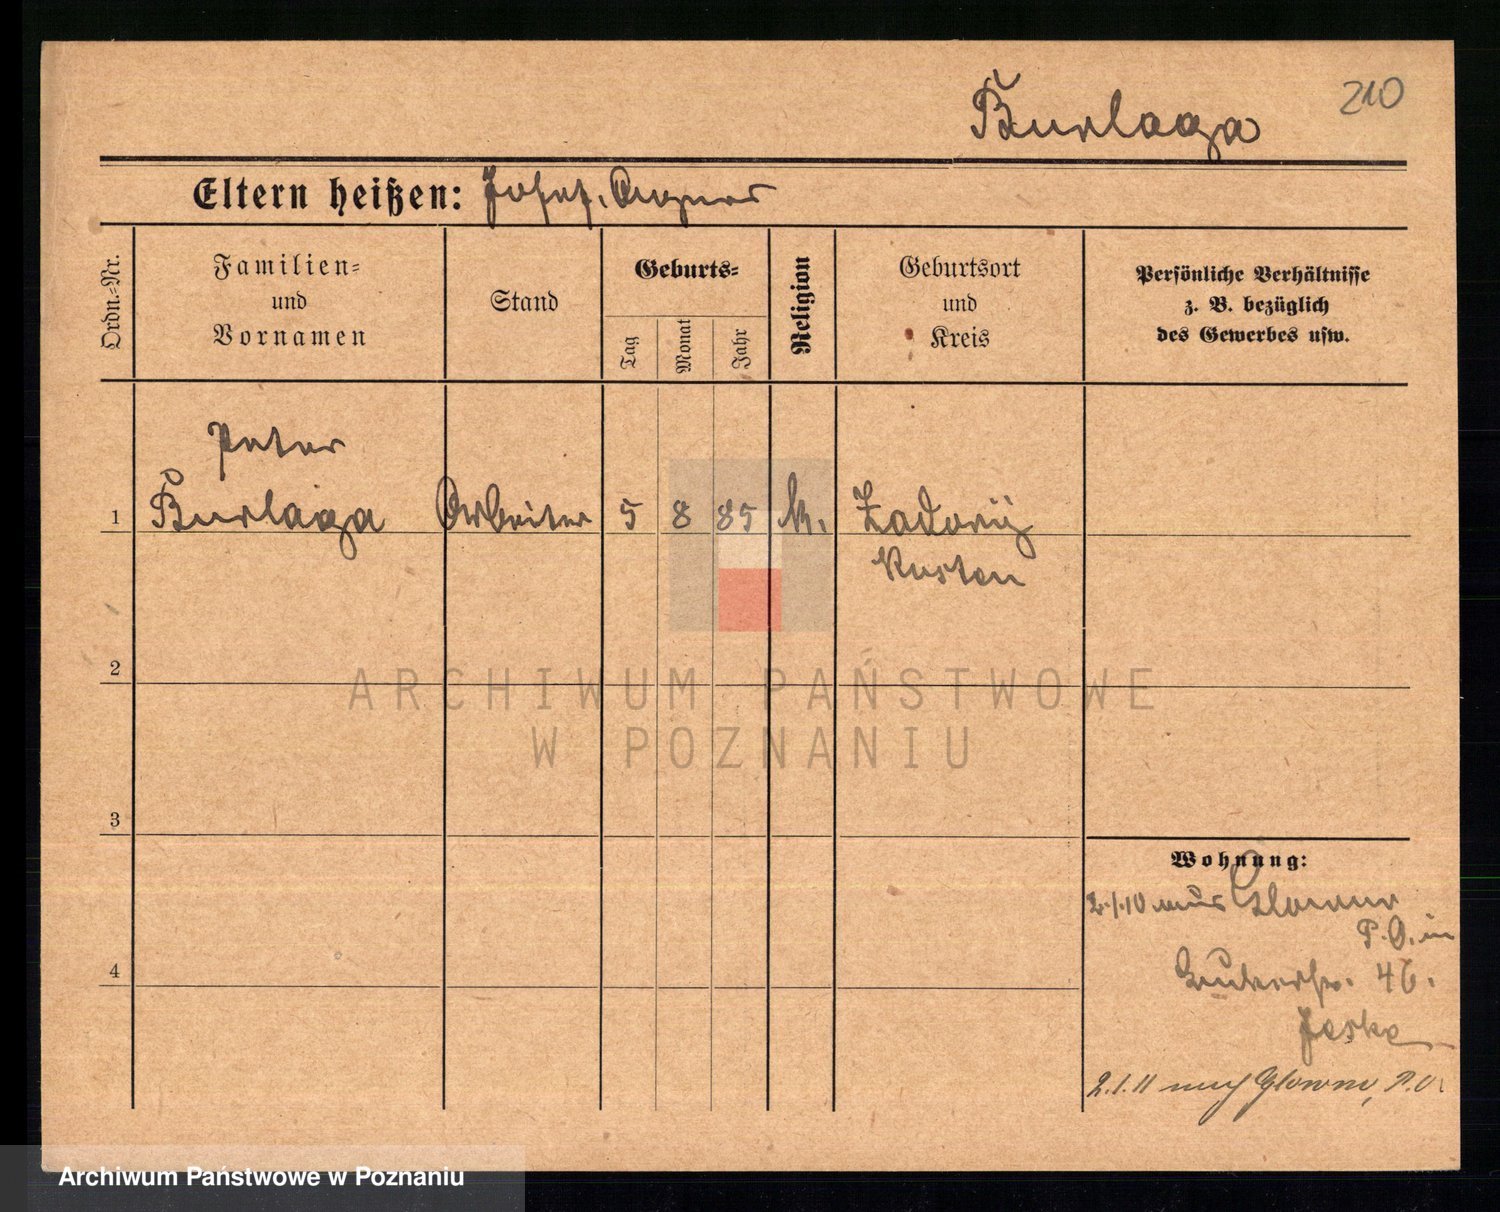 210
Burlaga
Eltern heißen: Josef, Agnes
Ordn.=Nr.
Familien=
und
Vornamen
Stand
Geburts=
Tag
Monat
Jahr
Religion
Geburtsort
und
Kreis
Persönliche Verhältnisse
z. B. bezüglich
des Gewerbes usw.
Peter
1 Burlaga Arbeiter 5 8 85 k.
Kosten
2
ARCHIWUM PAŃSTWOWE
W POZNANIU
3
Wohnung:
2.1.10 aus Glowno
P. O. in
4
46.
Jeske
2.1.11 nach Glowno, P.O.
Archiwum Państwowe w Poznaniu